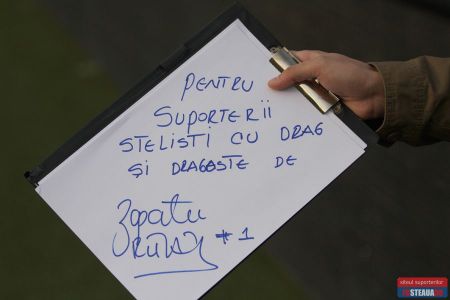 PENTRU
SUPORTERII
STELISTI CU DRAG
ȘI DRAGOSTE DE
#1
siteul suporterilor
STEAUA